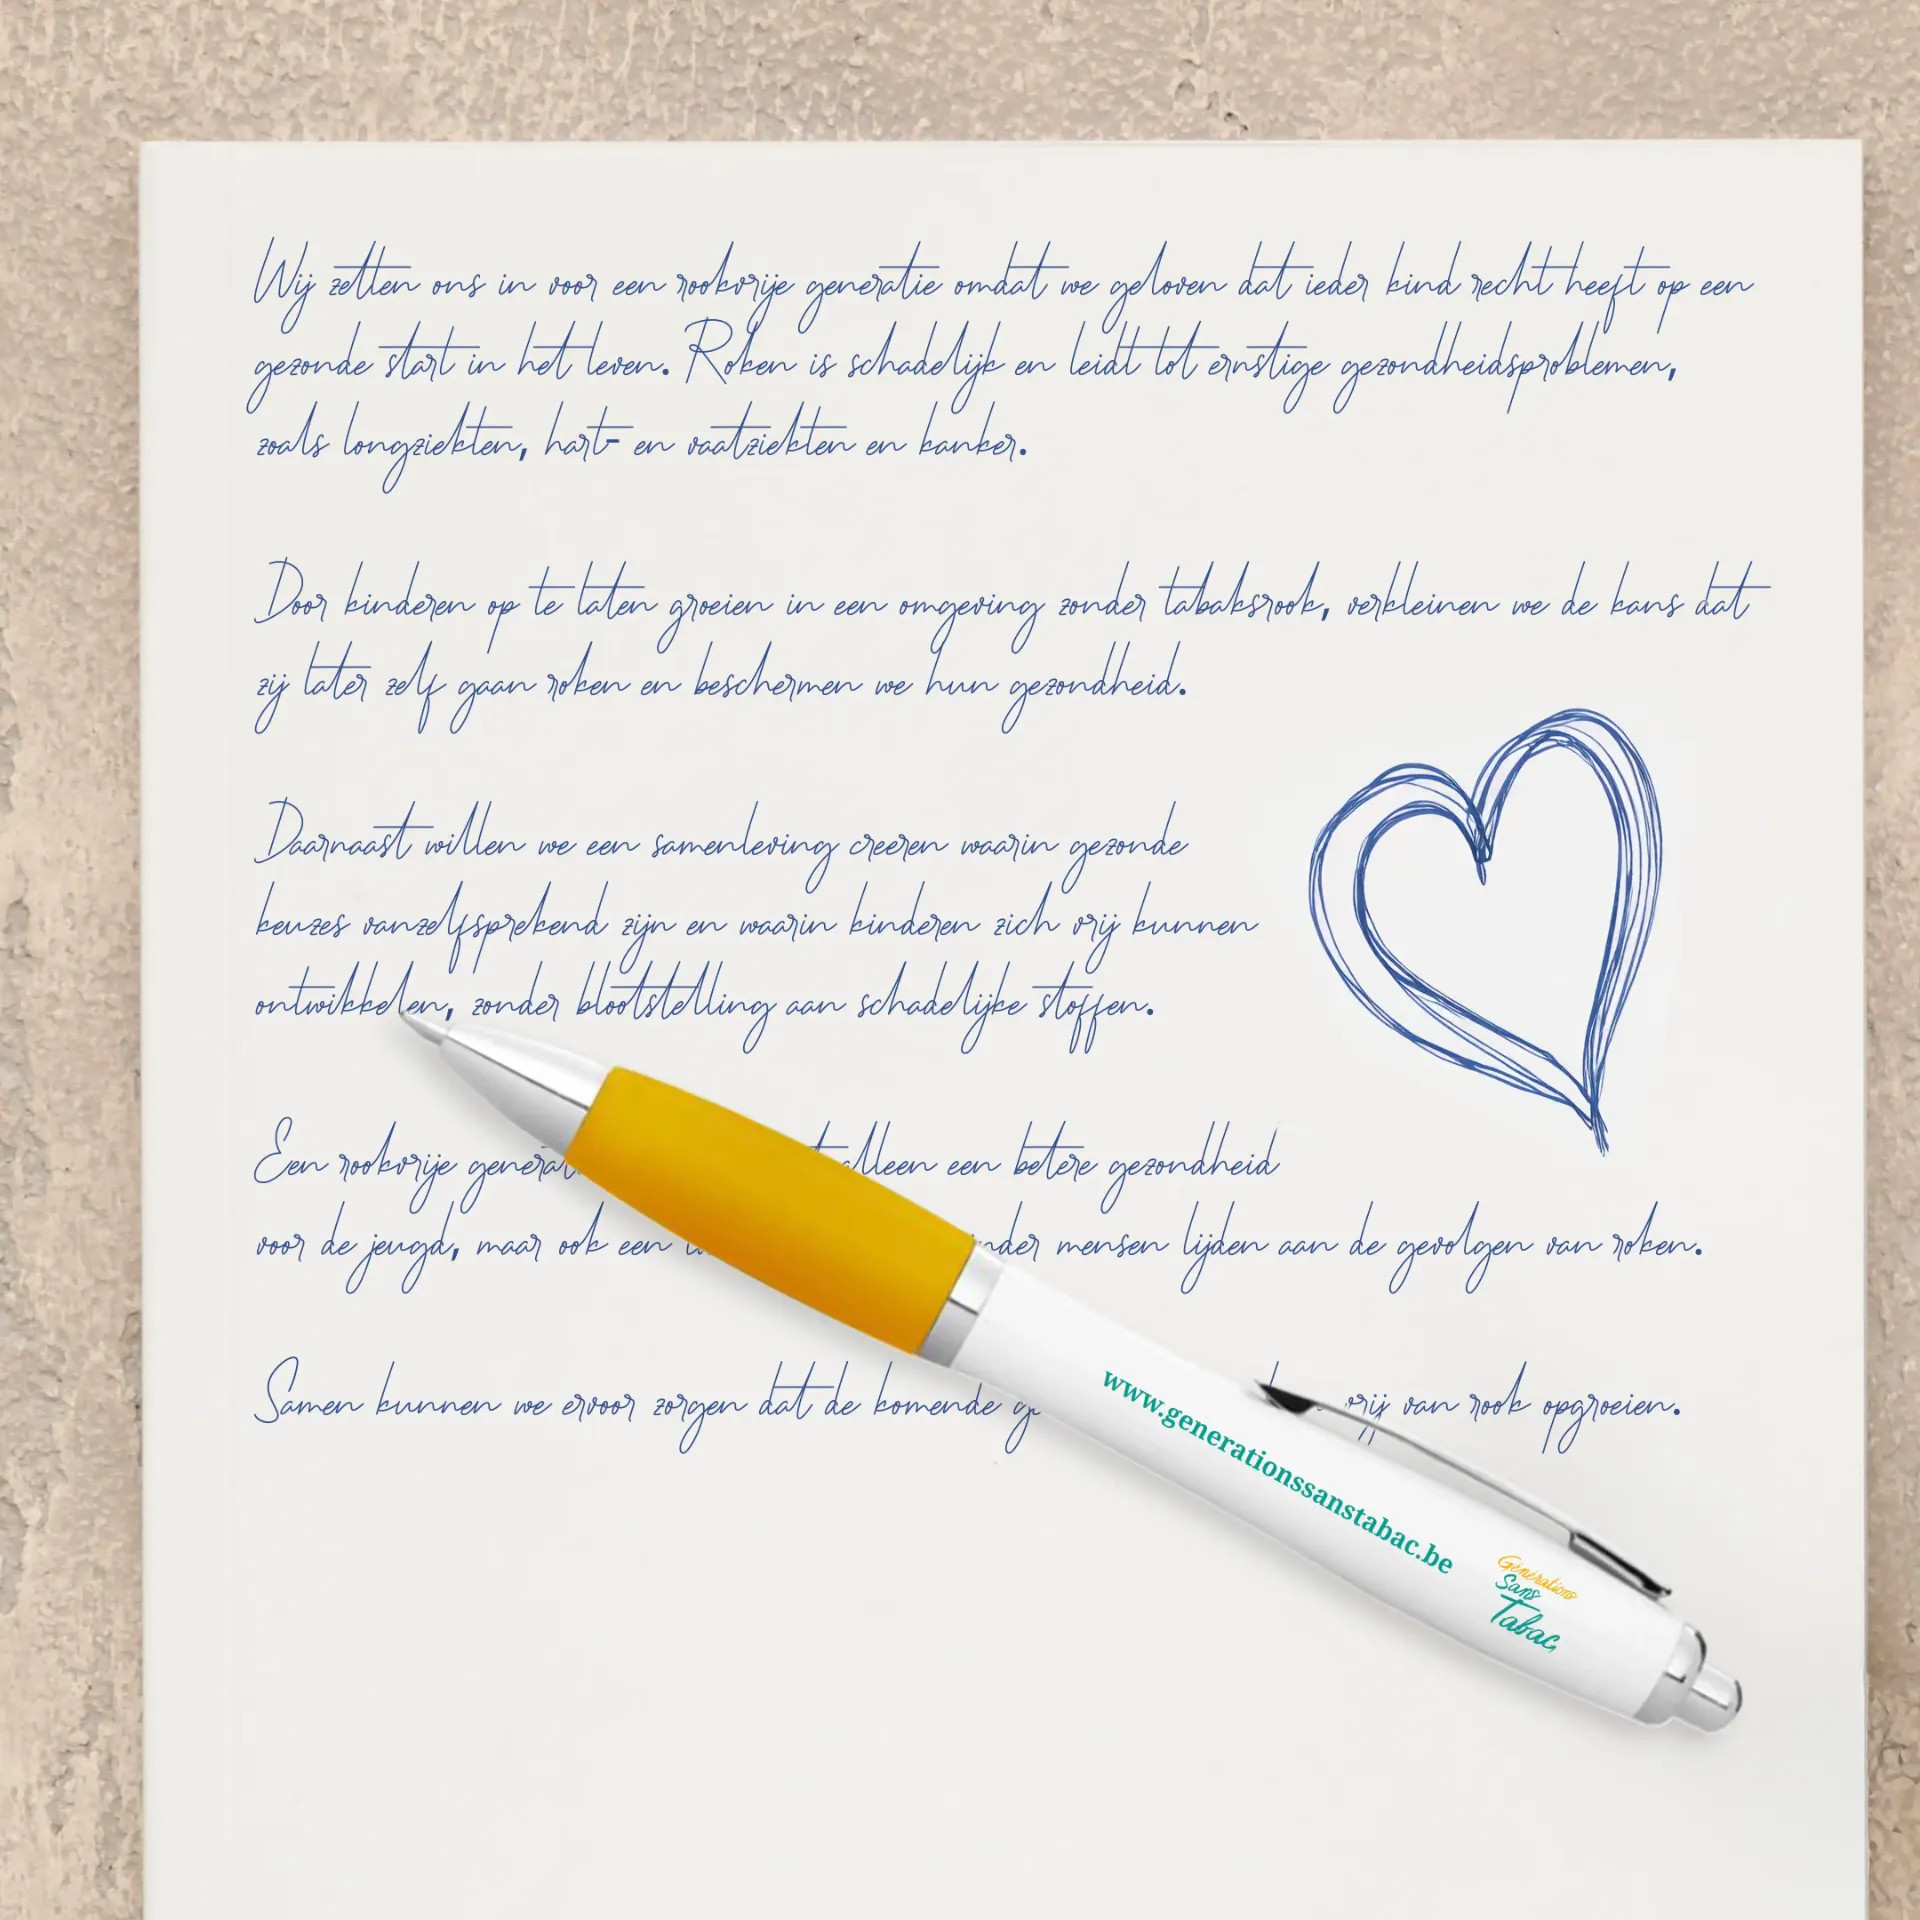 Wij zetten ons in voor een rookvrije generatie omdat we geloven dat ieder kind recht heeft op een
gezonde start in het leven. Roken is schadelijk en leidt tot ernstige gezondheidsproblemen,
zoals longziekten, hart- en vaatziekten en kanker.
Door kinderen op te laten groeien in een omgeving zonder tabaksrook, verkleinen we de kans dat
zij later zelf gaan roken en beschermen we hun gezondheid.
Daarnaast willen we een samenleving creeren waarin gezonde
keuzes vanzelfsprekend zijn en waarin kinderen zich vrij kunnen
ontwikkelen, zonder blootstelling aan schadelijke stoffen.
Een rookvrije alleen een betere gezondheid
voor de jeugd, maar ook een mensen lijden aan de gevolgen van roken.
Samen kunnen we ervoor zorgen dat de komende vrij van rook opgroeien.
www.generationssanstabac.be
Générations
Sans
Tabac